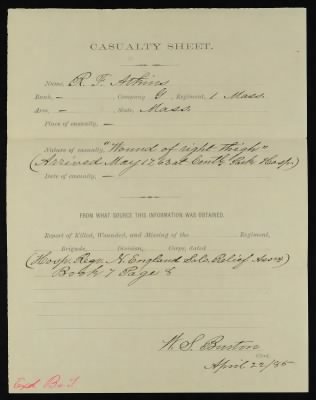 CASUALTY SHEET.
Name, R. F. Atkins
Rank, – Company G Regiment, 1 Mass.
Arm, – State, Mass.
Place of casualty, –
Nature of casualty, "Wound of right thigh"
(Arrived May 17 63 at Centl. Park Hosp.)
Date of casualty, –
FROM WHAT SOURCE THIS INFORMATION WAS OBTAINED.
Report of Killed, Wounded, and Missing of the Regiment,
Brigade, Division, Corps, dated
(Hosp. Regr. N. England Sol. Relief Assn)
Book 7 Page 8
W. S. Burton
Clerk.
April 22/85
Exd